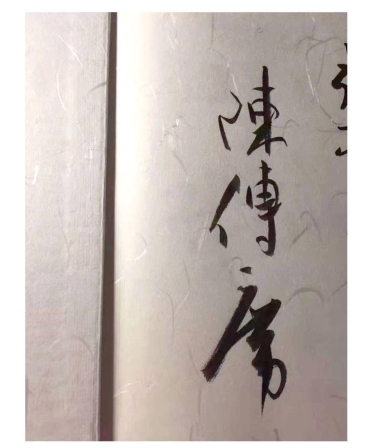 陳傳席